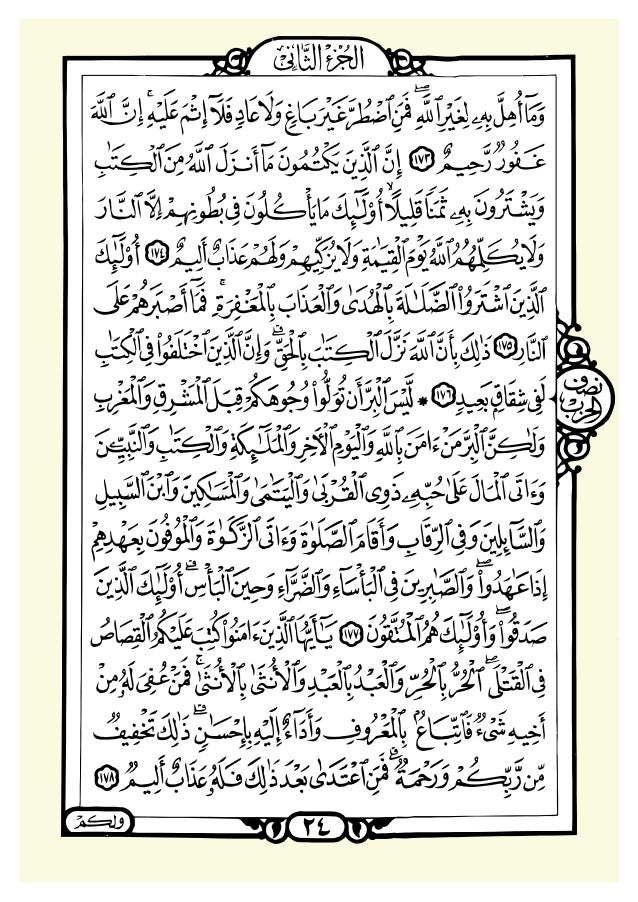 الجُزْءُ الثَّانِي
وَمَآ أُهِلَّ بِهِۦ لِغَيْرِ ٱللَّهِ ۖ فَمَنِ ٱضْطُرَّ غَيْرَ بَاغٍ وَلَا عَادٍ فَلَآ إِثْمَ عَلَيْهِ ۚ إِنَّ ٱللَّهَ
غَفُورٌ رَّحِيمٌ ١٧٣ إِنَّ ٱلَّذِينَ يَكْتُمُونَ مَآ أَنزَلَ ٱللَّهُ مِنَ ٱلْكِتَٰبِ
وَيَشْتَرُونَ بِهِۦ ثَمَنًا قَلِيلًا ۙ أُو۟لَٰٓئِكَ مَا يَأْكُلُونَ فِى بُطُونِهِمْ إِلَّا ٱلنَّارَ
وَلَا يُكَلِّمُهُمُ ٱللَّهُ يَوْمَ ٱلْقِيَٰمَةِ وَلَا يُزَكِّيهِمْ وَلَهُمْ عَذَابٌ أَلِيمٌ ١٧٤ أُو۟لَٰٓئِكَ
ٱلَّذِينَ ٱشْتَرَوُا۟ ٱلضَّلَٰلَةَ بِٱلْهُدَىٰ وَٱلْعَذَابَ بِٱلْمَغْفِرَةِ ۚ فَمَآ أَصْبَرَهُمْ عَلَى
ٱلنَّارِ ١٧٥ ذَٰلِكَ بِأَنَّ ٱللَّهَ نَزَّلَ ٱلْكِتَٰبَ بِٱلْحَقِّ ۗ وَإِنَّ ٱلَّذِينَ ٱخْتَلَفُوا۟ فِى ٱلْكِتَٰبِ
لَفِى شِقَاقٍۭ بَعِيدٍ ١٧٦ * لَّيْسَ ٱلْبِرَّ أَن تُوَلُّوا۟ وُجُوهَكُمْ قِبَلَ ٱلْمَشْرِقِ وَٱلْمَغْرِبِ
نصف الحزب
وَلَٰكِنَّ ٱلْبِرَّ مَنْ ءَامَنَ بِٱللَّهِ وَٱلْيَوْمِ ٱلْءَاخِرِ وَٱلْمَلَٰٓئِكَةِ وَٱلْكِتَٰبِ وَٱلنَّبِيِّـۧنَ
وَءَاتَى ٱلْمَالَ عَلَىٰ حُبِّهِۦ ذَوِى ٱلْقُرْبَىٰ وَٱلْيَتَٰمَىٰ وَٱلْمَسَٰكِينَ وَٱبْنَ ٱلسَّبِيلِ
وَٱلسَّآئِلِينَ وَفِى ٱلرِّقَابِ وَأَقَامَ ٱلصَّلَوٰةَ وَءَاتَى ٱلزَّكَوٰةَ وَٱلْمُوفُونَ بِعَهْدِهِمْ
إِذَا عَٰهَدُوا۟ ۖ وَٱلصَّٰبِرِينَ فِى ٱلْبَأْسَآءِ وَٱلضَّرَّآءِ وَحِينَ ٱلْبَأْسِ ۗ أُو۟لَٰٓئِكَ ٱلَّذِينَ
صَدَقُوا۟ ۖ وَأُو۟لَٰٓئِكَ هُمُ ٱلْمُتَّقُونَ ١٧٧ يَٰٓأَيُّهَا ٱلَّذِينَ ءَامَنُوا۟ كُتِبَ عَلَيْكُمُ ٱلْقِصَاصُ
فِى ٱلْقَتْلَى ۖ ٱلْحُرُّ بِٱلْحُرِّ وَٱلْعَبْدُ بِٱلْعَبْدِ وَٱلْأُنثَىٰ بِٱلْأُنثَىٰ ۚ فَمَنْ عُفِىَ لَهُۥ مِنْ
أَخِيهِ شَىْءٌ فَٱتِّبَاعٌۢ بِٱلْمَعْرُوفِ وَأَدَآءٌ إِلَيْهِ بِإِحْسَٰنٍ ۗ ذَٰلِكَ تَخْفِيفٌ
مِّن رَّبِّكُمْ وَرَحْمَةٌ ۗ فَمَنِ ٱعْتَدَىٰ بَعْدَ ذَٰلِكَ فَلَهُۥ عَذَابٌ أَلِيمٌ ١٧٨
ولكم
٢٤